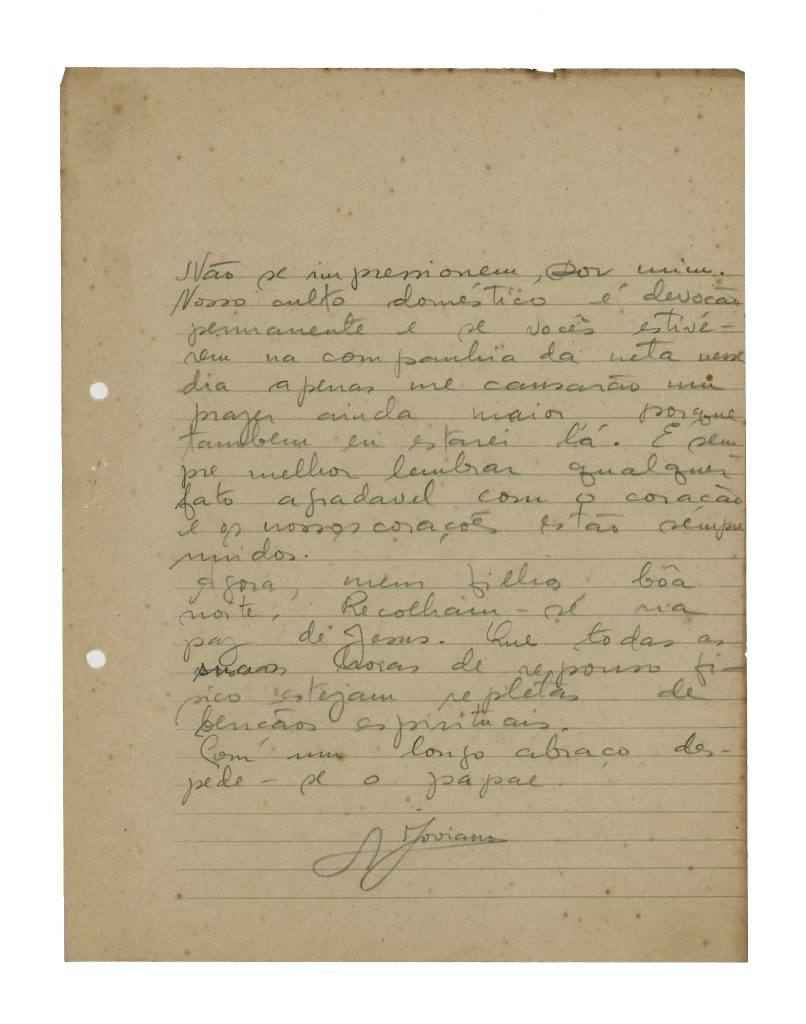 Não se impressionem, por mim.
Nosso culto doméstico é devoção
permanente e se vocês estivé-
rem na companhia da neta nesse
dia apenas me causarão um
prazer ainda maior porque
também eu estarei lá. É sem
pre melhor lembrar qualquer
fato agradavel com o coração
e os nossos corações estão sempre
unidos.
Agora, meu filho, bôa
noite. Recolham-se na
paz de Jesus. Que todas as
suas horas de repouso fi-
sico estejam repletas de
bençãos espirituais.
Com um longo abraço des-
pede-se o papae.
A Joviano